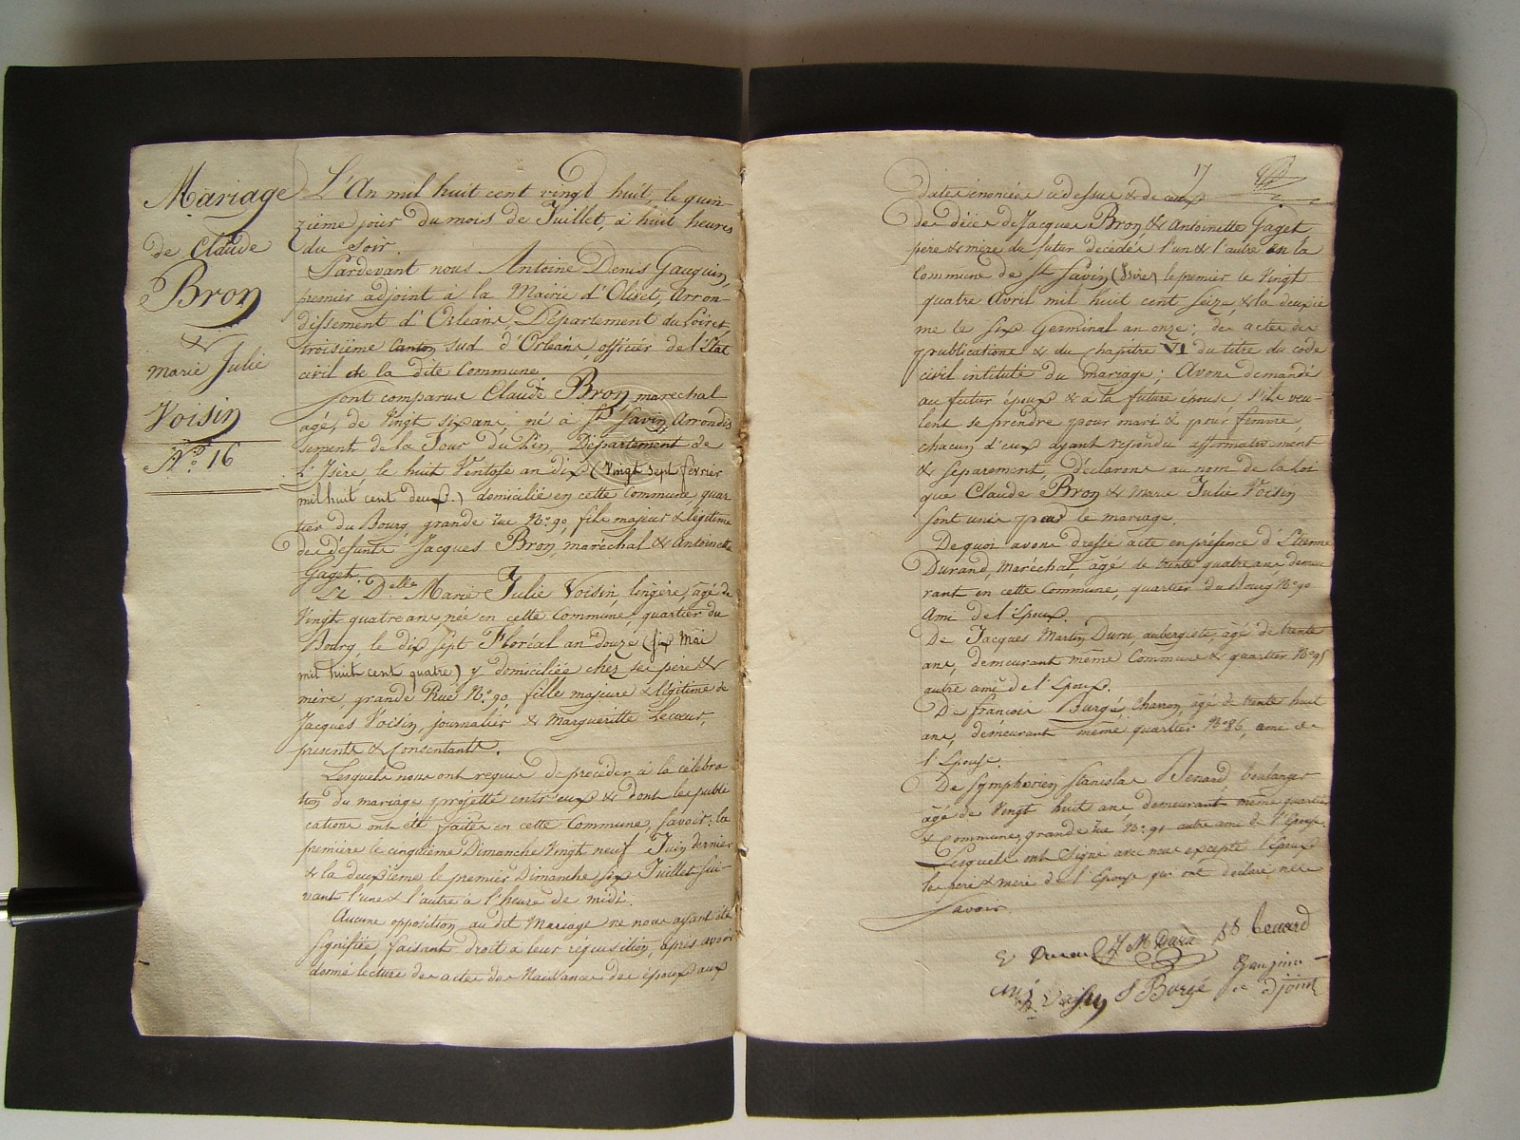 Mariage
de Claude
Bron
&
marie Julie
Voisin
N.º 16
L'An mil huit cent vingt huit, le quin-
zième jour du mois de Juillet, à huit heures
du soir.
Pardevant nous Antoine Denis Gauguin,
premier adjoint à la Mairie d'Olivet, Arron-
dissement d'Orléans, Département du Loiret,
troisième Canton sud d'Orléans, officier de l'Etat
civil de la dite Commune
Sont comparus Claude Bron, marechal
agé, de Vingt six ans, né à St. Savin, Arrondis
sement de la Tour du Pin, Département de
L'Isère, le huit Ventose an dix (Vingt sept fevrier
mil huit cent deux.) domicilié en cette Commune, quar
tier du Bourg, grande rue N.º 90, fils majeur & légitime
de défunts Jacques Bron, maréchal & Antoinette
Gaget.
Et D.elle Marie Julie Voisin, lingère, agé de
Vingt quatre ans, née en cette Commune, quartier du
Bourg, le dix sept Floréal an douze (six Mai
mil huit cent quatre) y domiciliée chez ses père &
mère, grande Rue N.º 90, fille majeure & légitime de
Jacques Voisin, journalier & Margueritte Lecœur,
présents & Consentants.
Lesquels nous ont requis de procéder à la célébra
tion du mariage projetté entr'eux & dont les publi
cations ont été faites en cette Commune, savoir: la
premiere le cinquième Dimanche Vingt neuf Juin dernier
& la deuxième le premier Dimanche six Juillet sui-
vant l'une & l'autre à l'heure de midi.
Aucune opposition au dit Mariage ne nous ayant été
signifiée, faisant droit a leur requisition, après avoir
donné lecture des actes de Naissance des époux aux
17
dates énoncées ci dessus & de ceux
de décès de Jacques Bron, & Antoinette Gaget
pere & mère du futur décédés l'un & l'autre en la
Commune de St Savin (Isère) le premier le Vingt
quatre Avril mil huit cent seize & la deuxiè
me le six Germinal an onze; des actes de
publications & du chapitre VI du titre du code
civil intitulé du Mariage; Avons demandé
au futur époux & à la future épouse s'ils veu-
lent se prendre pour mari & pour femme,
chacun d'eux ayant répondu affirmativement
& séparement, déclarons au nom de la Loi
que Claude Bron & Marie Julie Voisin
sont unis par le mariage.
De quoi avons dressé acte en présence d'Etienne
Durand, Maréchal, agé de trente quatre ans demeu
rant en cette Commune, quartier du Bourg N.º 90
Ami de l'Epoux.
De Jacques Martin Duru, aubergiste, âgé de trente
ans, demeurant même Commune & quartier N.º 95
autre ami de l'Epoux.
De françois Burgé, Charron, âgé de trente huit
ans, demeurant même quartier N.º 86, ami de
l'Epouse.
De Symphorien Stanislas Benard, boulanger
âgé de Vingt huit ans demeurant même quartier
& Commune, grande rue N.º 91 autre ami de l'Epouse.
Lesquels ont Signé avec nous excepté l'Epoux
les père & mère de l'Epouse qui ont déclaré ne le
savoir.
E Durand J M Duru SS benard
MJ Voisin f Burgé Gauguin
adjoint